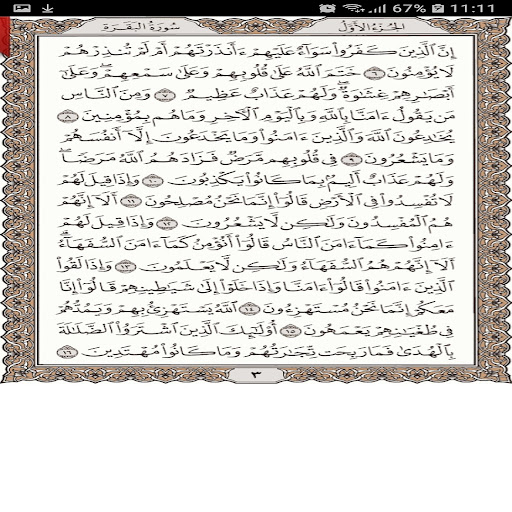 67% 11:11
الجزء الأول سورة البقرة
إن الذين كفروا سواء عليهم ءأنذرتهم أم لم تنذرهم
لا يؤمنون ٦ ختم الله على قلوبهم وعلى سمعهم وعلى
أبصارهم غشاوة ولهم عذاب عظيم ٧ ومن الناس
من يقول ءامنا بالله وباليوم الآخر وما هم بمؤمنين ٨
يخادعون الله والذين ءامنوا وما يخدعون إلا أنفسهم
وما يشعرون ٩ في قلوبهم مرض فزادهم الله مرضا
ولهم عذاب أليم بما كانوا يكذبون ١٠ وإذا قيل لهم
لا تفسدوا في الأرض قالوا إنما نحن مصلحون ١١ ألا إنهم
هم المفسدون ولكن لا يشعرون ١٢ وإذا قيل لهم
ءامنوا كما ءامن الناس قالوا أنؤمن كما ءامن السفهاء
ألا إنهم هم السفهاء ولكن لا يعلمون ١٣ وإذا لقوا
الذين ءامنوا قالوا ءامنا وإذا خلوا إلى شياطينهم قالوا إنا
معكم إنما نحن مستهزءون ١٤ الله يستهزئ بهم ويمدهم
في طغيانهم يعمهون ١٥ أولئك الذين اشتروا الضلالة
بالهدى فما ربحت تجارتهم وما كانوا مهتدين ١٦
٣